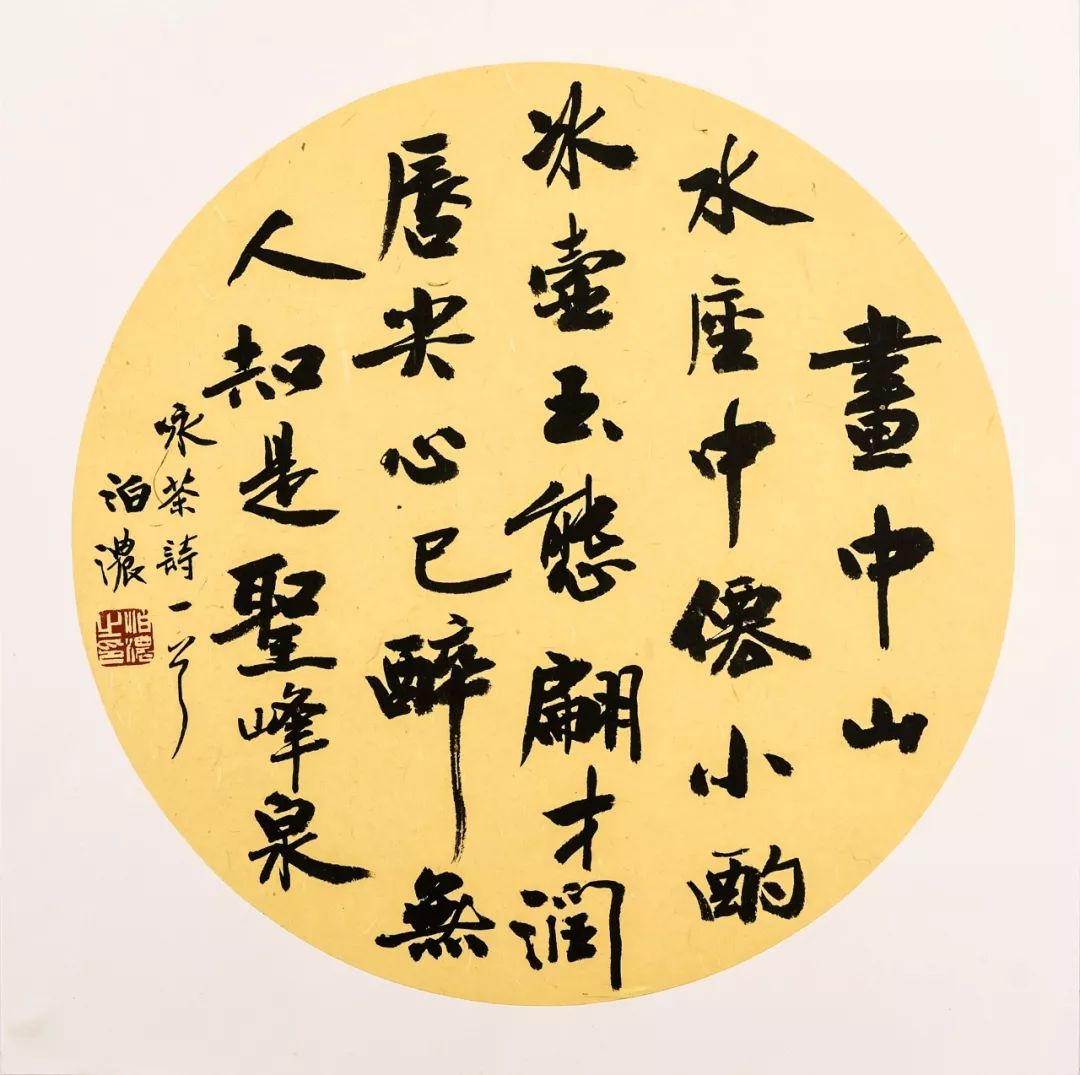 畫中山
水座中僊小酌
冰壺玉態翩才潤
唇尖心已醉無
人知是聖峰泉
咏茶詩一首
泊濃
泊濃之印